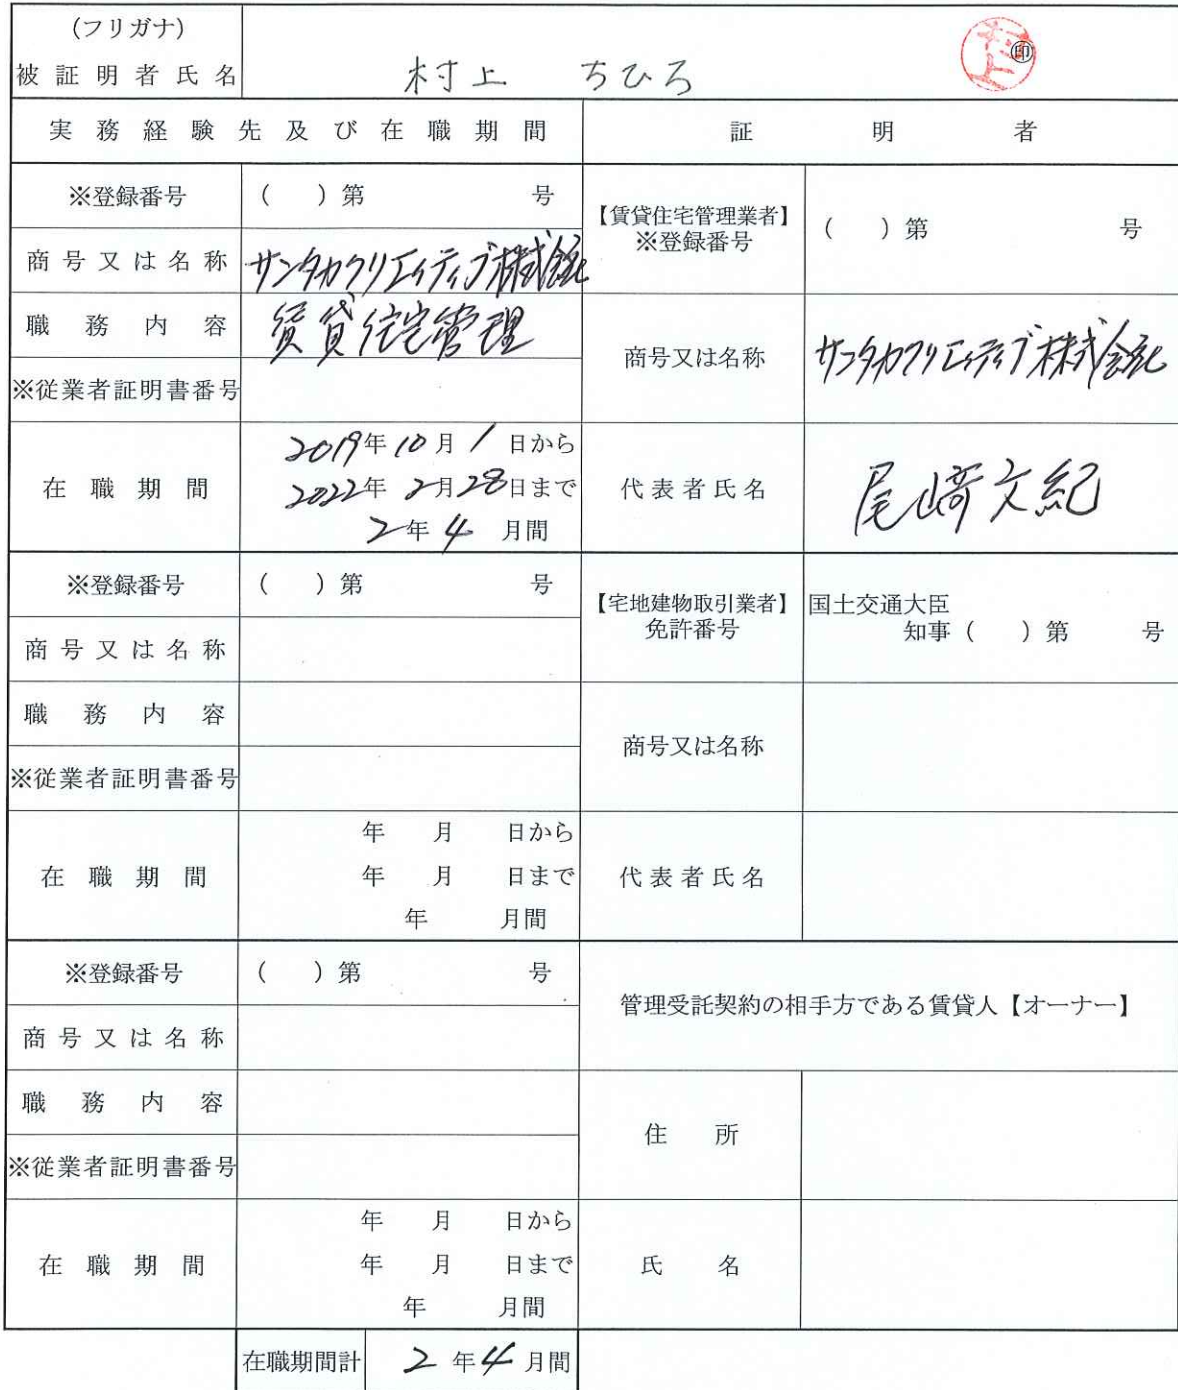 (フリガナ)
被証明者氏名 村上 ちひろ 村上 ㊞
実務経験先及び在職期間 証明者
※登録番号 ( ) 第 号
【賃貸住宅管理業者】
※登録番号 ( ) 第 号
商号又は名称 サンタカクリエイティブ株式会社
職務内容 賃貸住宅管理
商号又は名称 サンタカクリエイティブ株式会社
※従業者証明書番号
在職期間
2019年10月1日から
2022年2月28日まで
2年4月間
代表者氏名 尾﨑文紀
※登録番号 ( ) 第 号
【宅地建物取引業者】
免許番号
国土交通大臣
知事 ( ) 第 号
商号又は名称
職務内容
商号又は名称
※従業者証明書番号
在職期間
年 月 日から
年 月 日まで
年 月間
代表者氏名
※登録番号 ( ) 第 号
管理受託契約の相手方である賃貸人【オーナー】
商号又は名称
職務内容
住所
※従業者証明書番号
在職期間
年 月 日から
年 月 日まで
年 月間
氏名
在職期間計 2年4月間